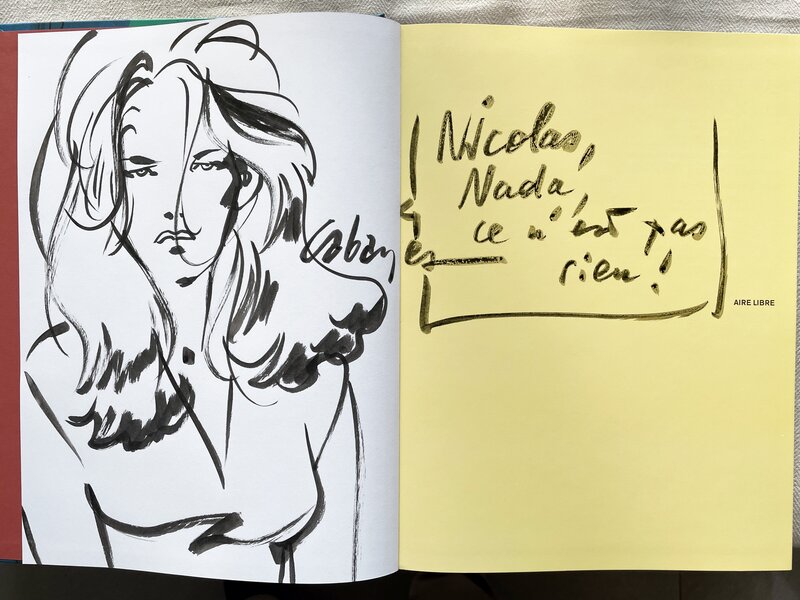 Nicolas,
Nada,
ce n'est pas
rien !
Cabanes
AIRE LIBRE